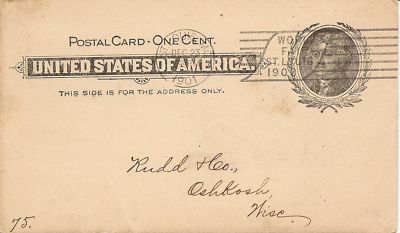 POSTAL CARD - ONE CENT.
UNITED STATES OF AMERICA.
THIS SIDE IS FOR THE ADDRESS ONLY.
DEC 23
1901
WO
FA
ST. LOUIS
1903
Rudd & Co.,
Oshkosh,
Wisc.
75.